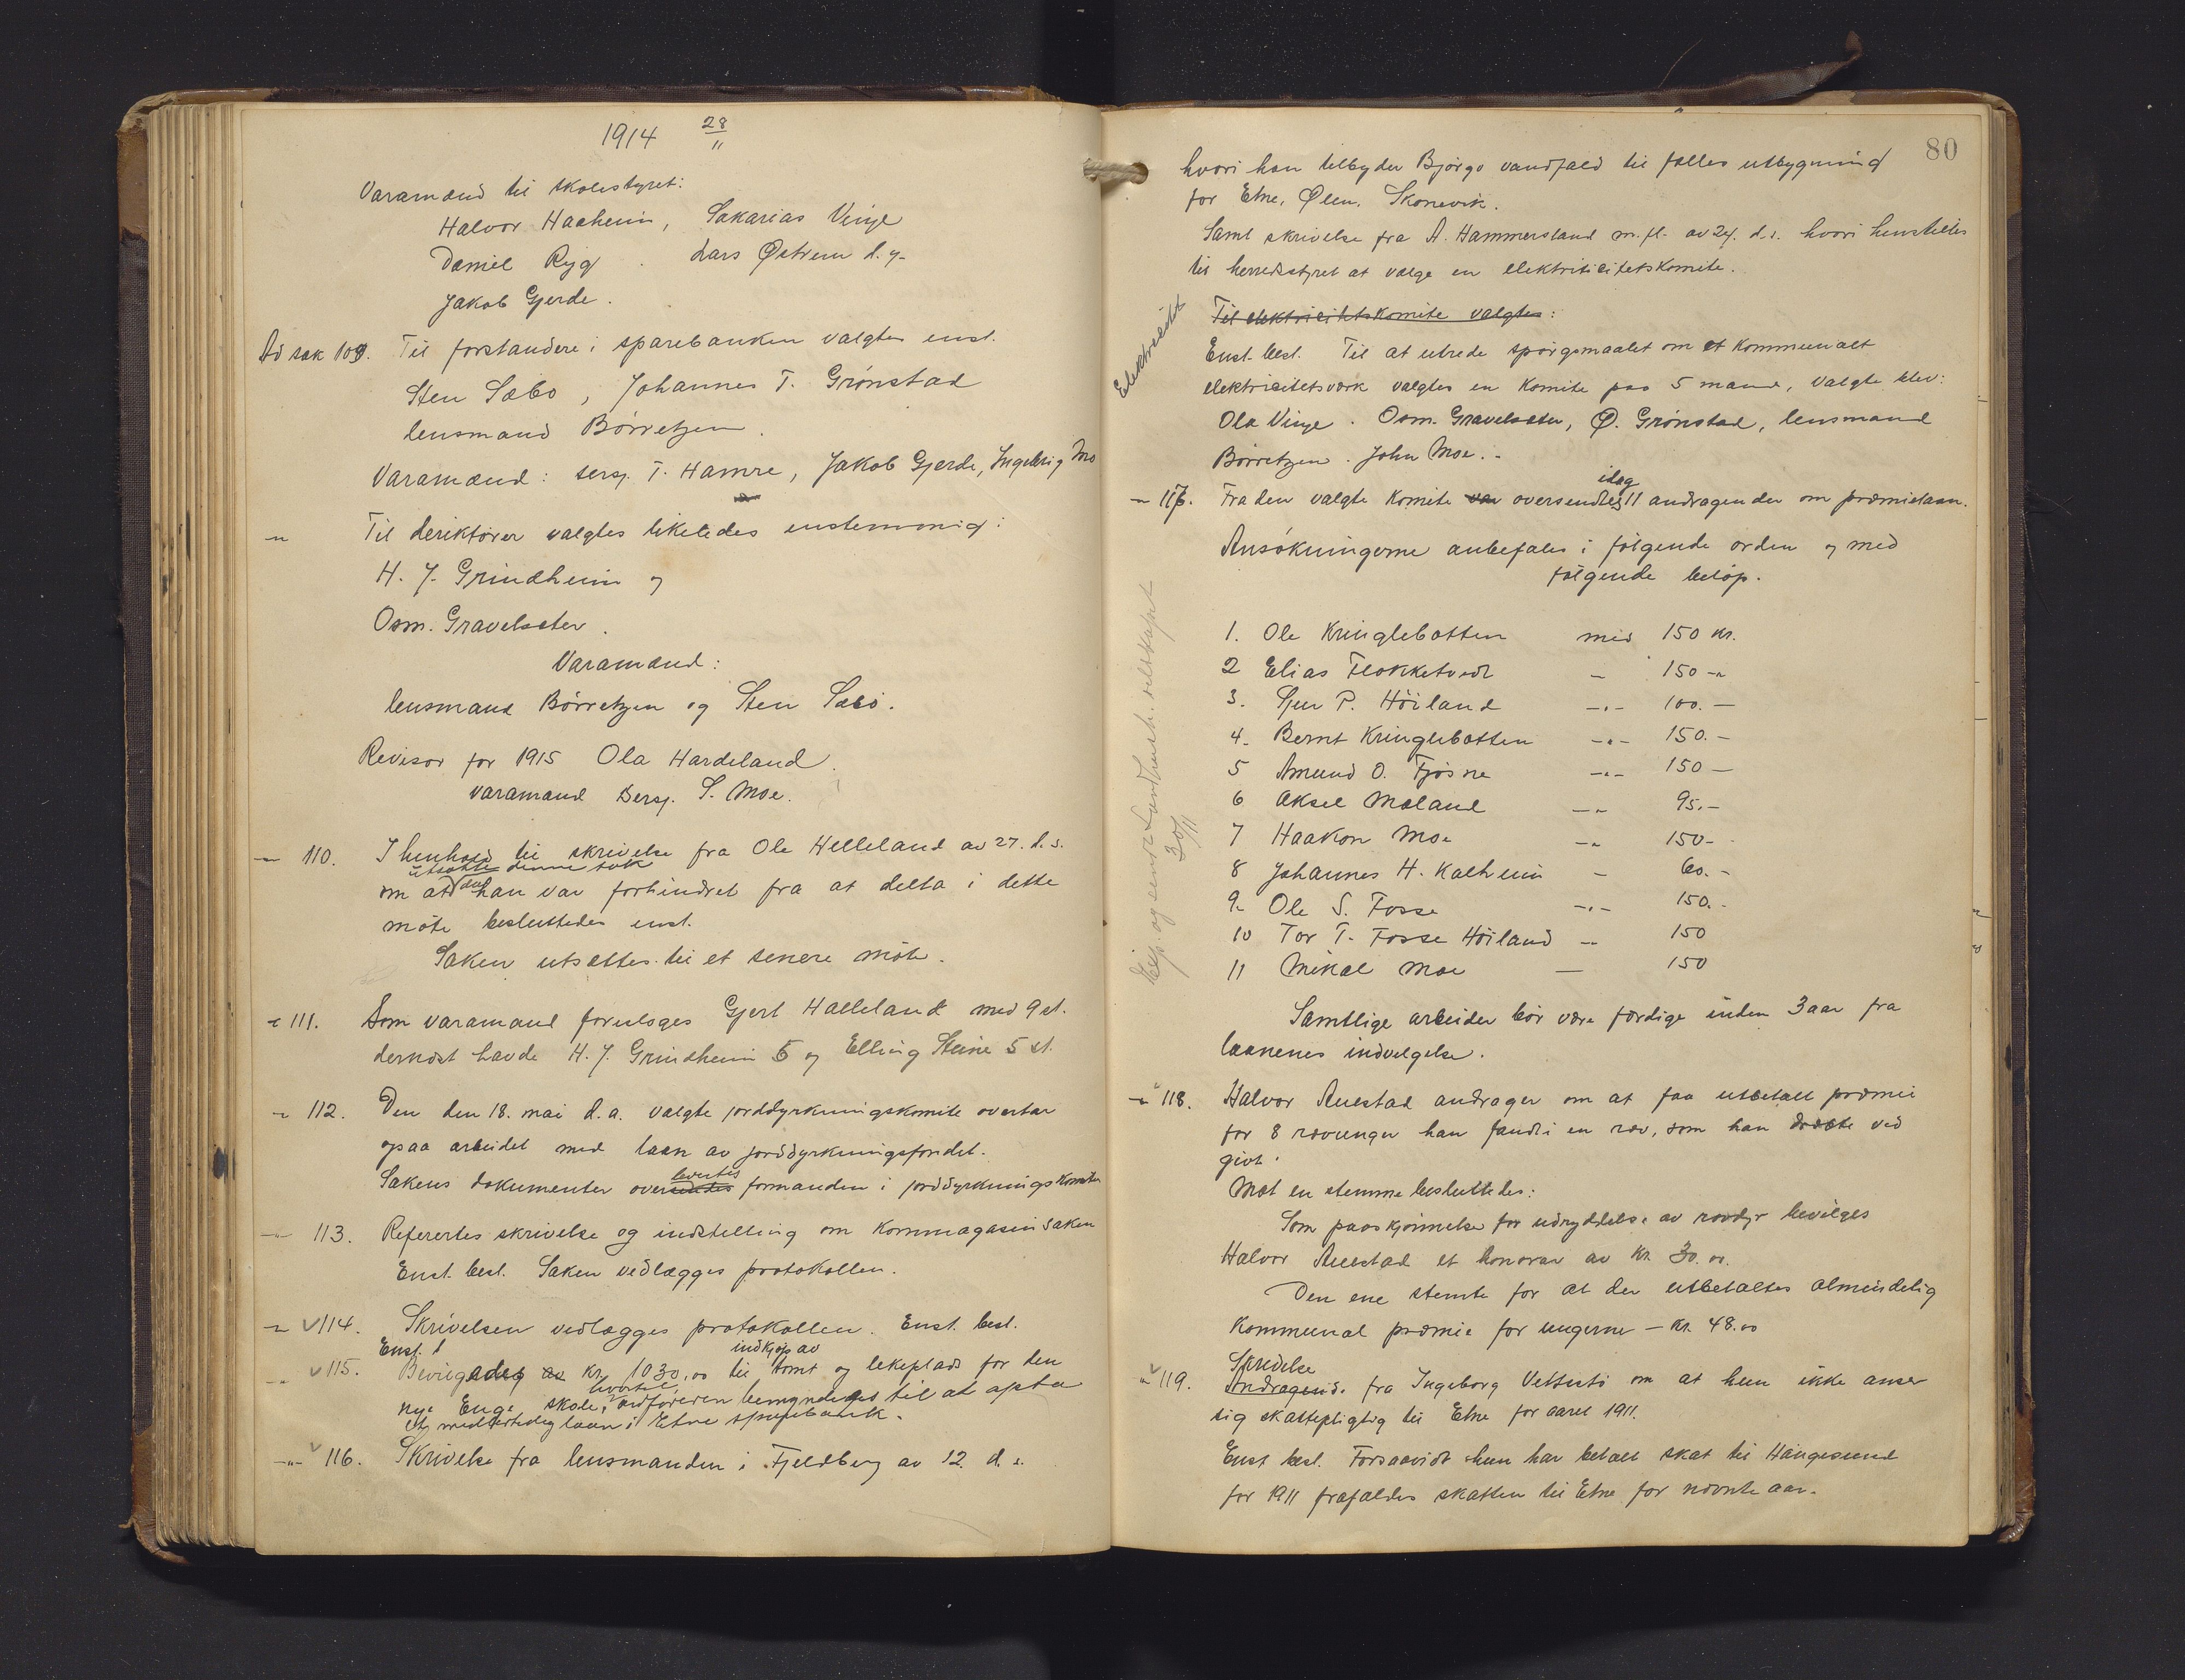 1914 28/11
Varamænd til skolestyret:
Halvor Haaheim, Sakarias Vinje
Daniel Ryg. Lars Østrem d.y.
Jakob Gjerde.
Ad sak 109. Til forstandere i sparebanken valgtes enst.
Sten Sæbø, Johannes T. Grønstad
lensmand Børretzen.
Varamænd: Sersj. T. Hamre, Jakob Gjerde, Ingebrig Mo
-"- Til deriktører valgtes likeledes enstemmig:
H. J. Grindheim og
Osm. Gravelsæter.
Varamænd:
lensmand Børretzen og Sten Sæbø.
Revisor for 1915 Ola Hardeland.
varamand Sersj. S. Moe.
-"- 110. I henhold til skrivelse fra Ole Helleland av 27. d.s.
utsætte denne sak
om at da han var forhindret fra at delta i dette
møte besluttedes enst.
Saken utsættes til et senere møte.
-"- 111. Som varamand foresloges Gjert Halleland med 9 st.
dernæst havde H. J. Grindheim 5 og Elling Steine 5 st.
-"- 112. Den den 18. mai d.a. valgte jorddyrkningskomite overtar
ogsaa arbeidet med laan av jorddyrkningsfondet.
leveries
Sakens dokumenter oversendes formanden i jorddyrkningskomite
-"- 113. Referertes skrivelse og indstilling om Kornmagasinsaken
Enst. besl. Saken vedlægges protokollen.
-"- 114. Skrivelsen vedlægges protokollen. Enst. besl.
Enst. indkjøp av
-"- 115. Bevilgedes kr. 1030,00 til tomt og lekeplads for den
nye Enge skole, hvortil ordføreren bemyndiges til at opta
et midlertidig laan i Etne sparebank.
-"- 116. Skrivelse fra lensmanden i Fjeldberg av 12. d.s.
80
hvori han tilbyder Bjørgo vandfald til fælles utbygning
for Etne, Ølen, Skonevik.
Samt skrivelse fra A. Hammersland m.fl. av 24. d.s. hvori henstilles
til herredsstyret at vælge en elektricitetskomite.
Til elektricitetskomite valgtes:
Elektrisitet
Enst. besl. Til at utrede spørgsmaalet om et kommunalt
elektricitetsværk valgtes en komite paa 5 mand, valgte blev:
Ola Vinje. Osm. Gravelsæter, Ø. Grønstad, lensmand
Børretzen. John Moe.-
idag
-"- 117. Fra den valgte komite var oversendtes 11 andragender om præmielaan.
Ansøkningerne anbefales i følgende orden og med
følgende beløp.
1. Ole Kringlebotten med 150 kr.
2 Elias Flokketvedt - 150 -"-
3. Sjur P. Høiland -"- 100.-
4. Bernt Kringlebotten -"- 150.-
5 Amund O. Fjøsne -"- 150 -
6 Aksel Mæland -"- 95.-
7 Haakon Moe -"- 150-
8 Johannes H. Kalheim - 60.-
9. Ole S. Fosse -"- 150.-
10 Tor T. Fosse Høiland -"- 150
11 Mikal Moe - 150
30/11
Samtlige arbeider bør være færdige inden 3 aar fra
laanenes indvilgelse.
-"- 118. Halvor Auestad andrager om at faa utbetalt præmie
for 8 rævunger han fandt i en ræv, som han dræbte ved
givt.
Mot en stemme besluttedes:
Som paaskjønnelse for udryddelse av rovdyr bevilges
Halvor Auestad et honorar av kr. 30.00.
Den ene stemte for at der utbetaltes almindelig
kommunal præmie for ungerne - kr. 48.00
Skrivelse
-"- 119. Andragende fra Ingeborg Vettestø om at hun ikke anser
sig skattepligtig til Etne for aaret 1911.
Enst besl. Forsaavidt hun har betalt skat til Haugesund
for 1911 frafaldes skatten til Etne for nævnte aar.